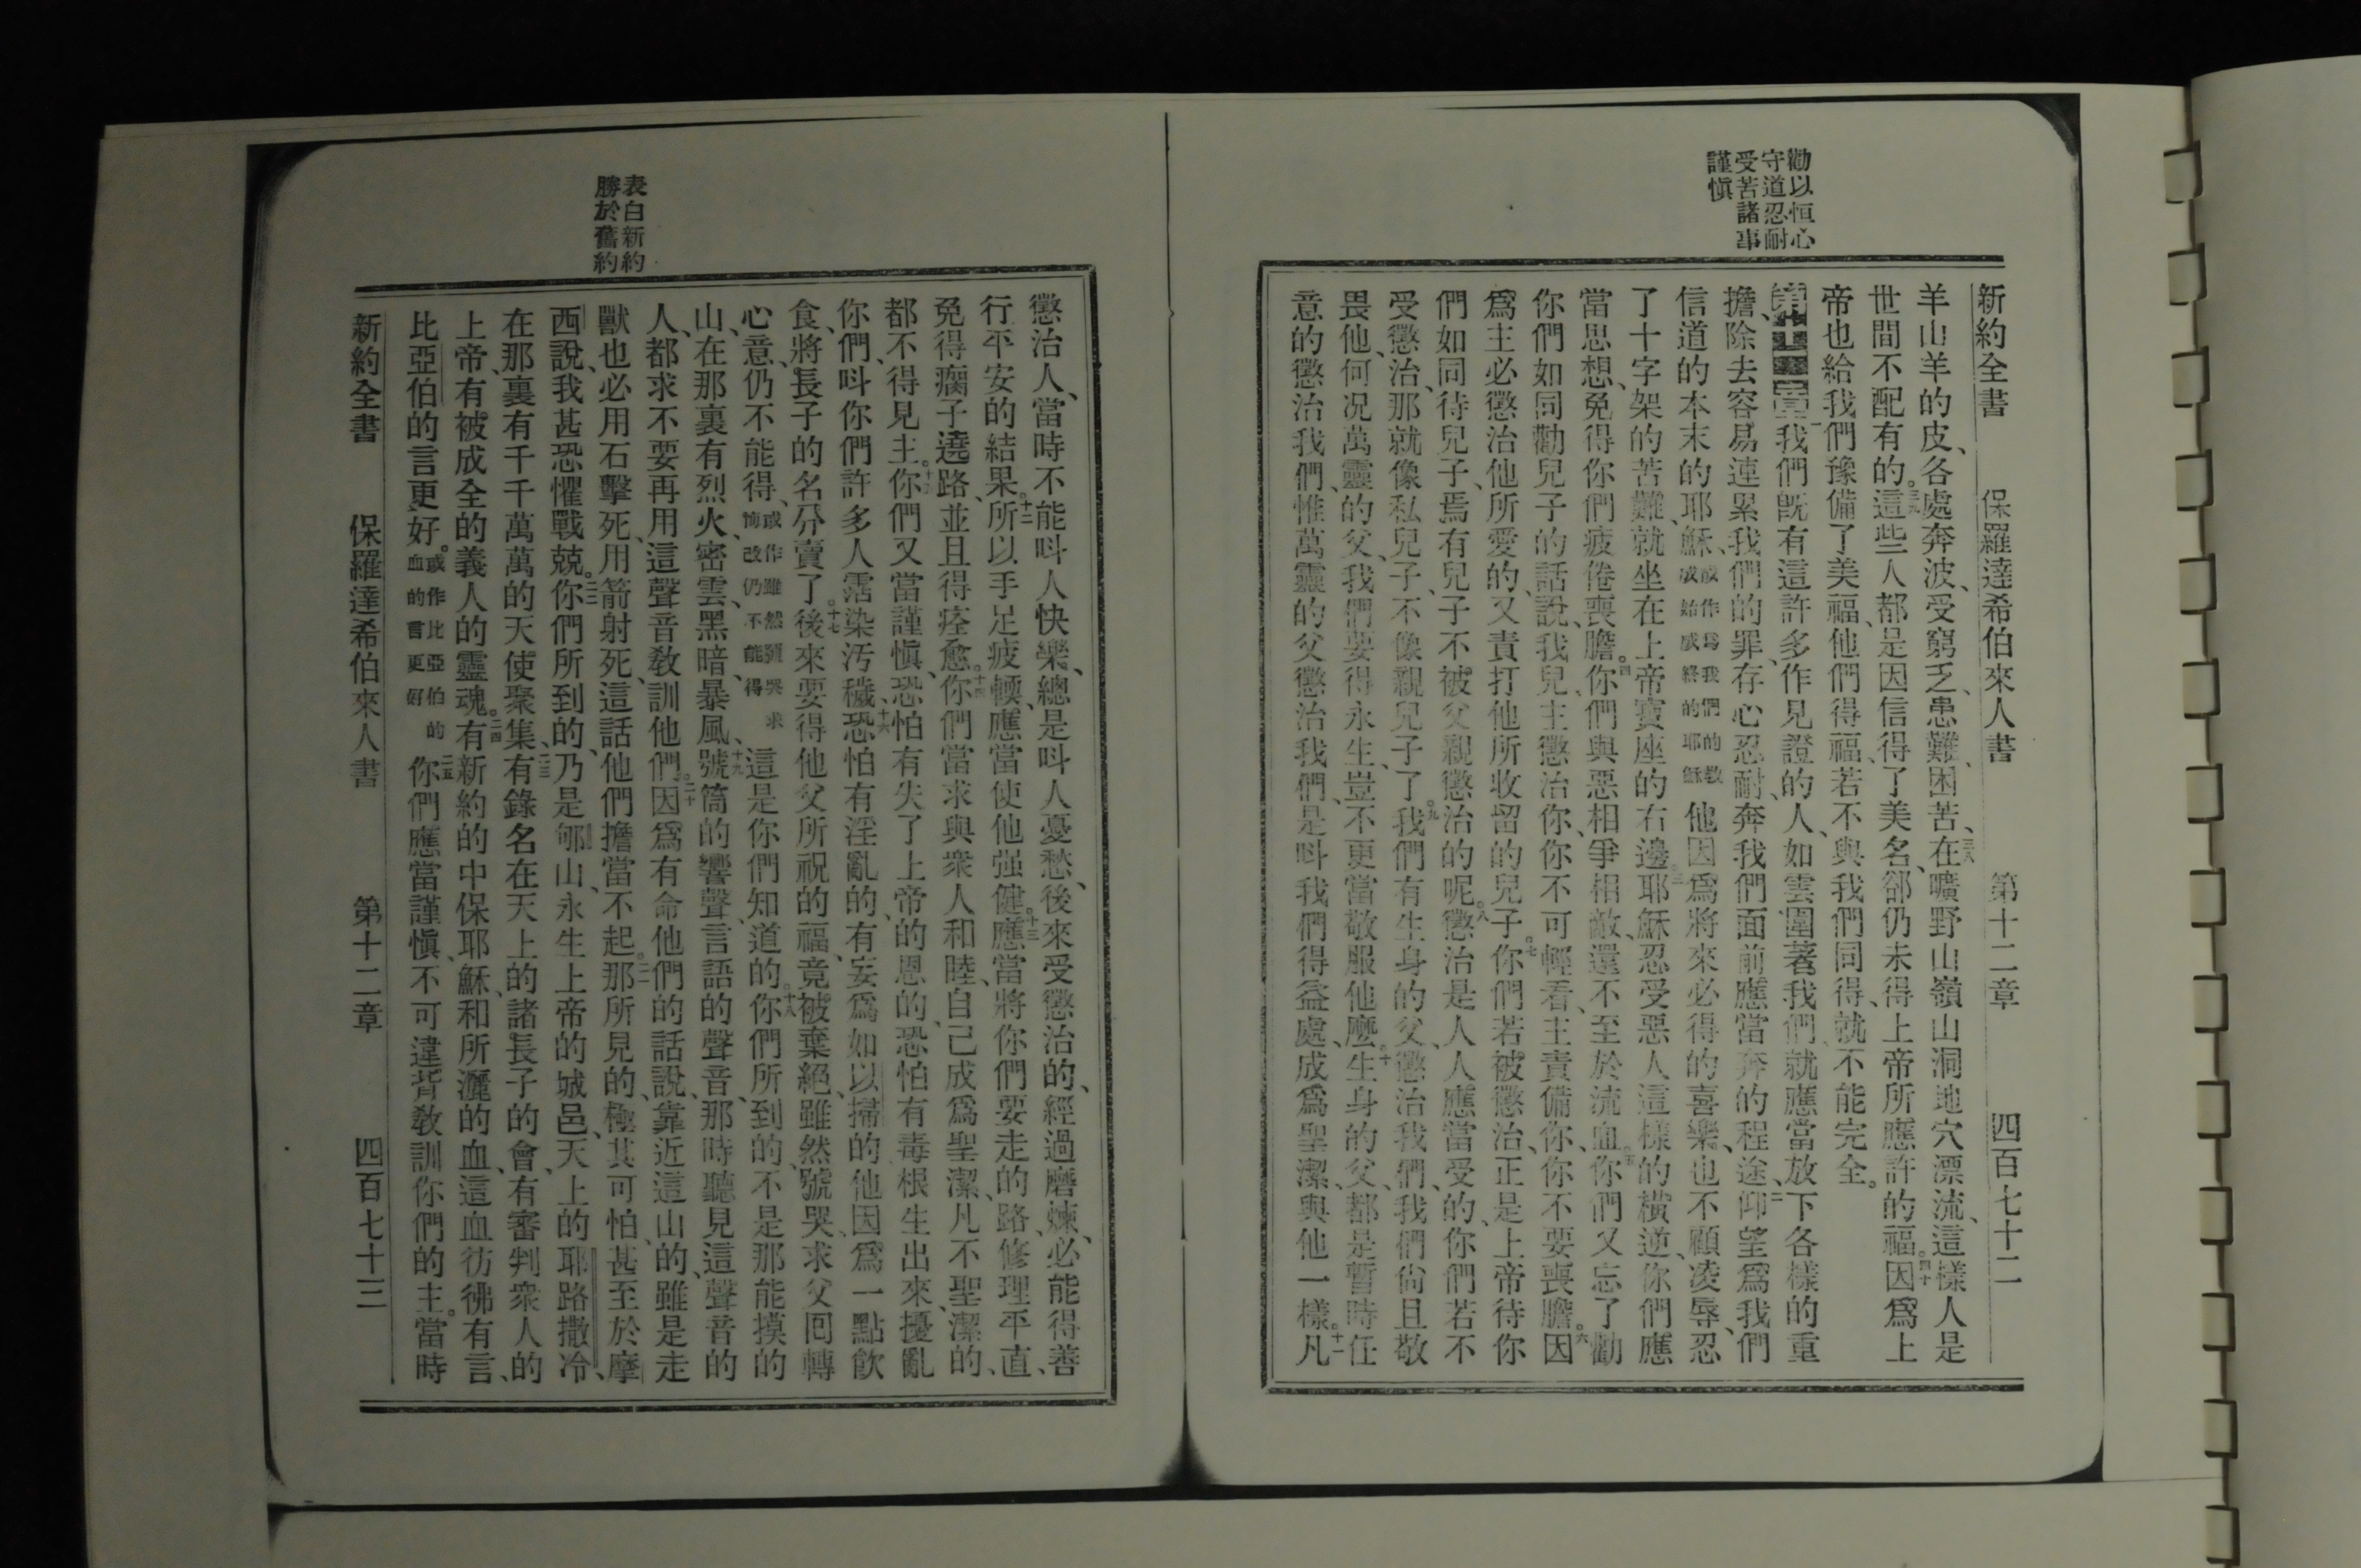 勸以恒心
守道忍耐
受苦諸事
謹愼
新約全書 保羅達希伯來人書 第十二章 四百七十二
羊山羊的皮、各處奔波、受窮乏、患難、困苦、三八在曠野山嶺山洞地穴漂流、這樣人是
世間不配有的。三九這些人都是因信得了美名、卻仍未得上帝所應許的福。四十因爲上
帝也給我們豫備了美福、他們得福、若不與我們同得、就不能完全。
第十二章一我們旣有這許多作見證的人、如雲圍著我們、就應當放下各樣的重
擔、除去容易連累我們的罪、存心忍耐、奔我們面前應當奔的程途、二仰望爲我們
信道的本末的耶穌、或作爲我們的敎成始成終的耶穌他因爲將來必得的喜樂、也不顧凌辱、忍
了十字架的苦難、就坐在上帝寶座的右邊。三耶穌忍受惡人這樣的橫逆、你們應
當思想、免得你們疲倦喪膽。四你們與惡相爭相敵、還不至於流血。五你們又忘了勸
你們如同勸兒子的話說、我兒、主懲治你、你不可輕看、主責備你、你不要喪膽。六因
爲主必懲治他所愛的、又責打他所收留的兒子。七你們若被懲治、正是上帝待你
們如同待兒子、焉有兒子不被父親懲治的呢。八懲治是人人應當受的、你們若不
受懲治、那就像私兒子、不像親兒子了。九我們有生身的父、懲治我們、我們尙且敬
畏他、何况萬靈的父、我們要得永生、豈不更當敬服他麽。十生身的父、都是暫時任
意的懲治我們、惟萬靈的父懲治我們、是呌我們得益處、成爲聖潔、與他一樣。十一凡
表白新約
勝於舊約
懲治人、當時不能呌人快樂、總是呌人憂愁、後來受懲治的、經過磨煉、必能得善
行平安的結果。十二所以手足疲輭、應當使他强健。十三應當將你們要走的路、修理平直、
免得瘸子遶路、並且得痊愈。十四你們當求與衆人和睦、自己成爲聖潔、凡不聖潔的、
都不得見主。十五你們又當謹愼、恐怕有失了上帝的恩的、恐怕有毒根生出來、擾亂
你們、呌你們許多人霑染汚穢、十六恐怕有淫亂的、有妄爲如以掃的他因爲一點飮
食、將長子的名分賣了。十七後來要得他父所祝的福、竟被棄絕、雖然號哭、求父囘轉
心意、仍不能得、或作雖然號哭求悔改仍不能得這是你們知道的。十八你們所到的、不是那能摸的
山、在那裏有烈火、密雲、黑暗、暴風、十九號筒的響聲、言語的聲音、那時聽見這聲音的
人、都求不要再用這聲音敎訓他們。二十因爲有命他們的話說、靠近這山的、雖是走
獸也必用石擊死、用箭射死、這話他們擔當不起。二一那所見的、極其可怕、甚至於摩
西說、我甚恐懼戰兢。二二你們所到的、乃是郇山、永生上帝的城邑、天上的耶路撒冷、
在那裏有千千萬萬的天使聚集、二三有錄名在天上的諸長子的會、有審判衆人的
上帝、有被成全的義人的靈魂。二四有新約的中保耶穌、和所灑的血、這血彷彿有言、
比亞伯的言更好。或作比亞伯的血的言更好二五你們應當謹愼、不可違背敎訓你們的主。當時
新約全書 保羅達希伯來人書 第十二章 四百七十三